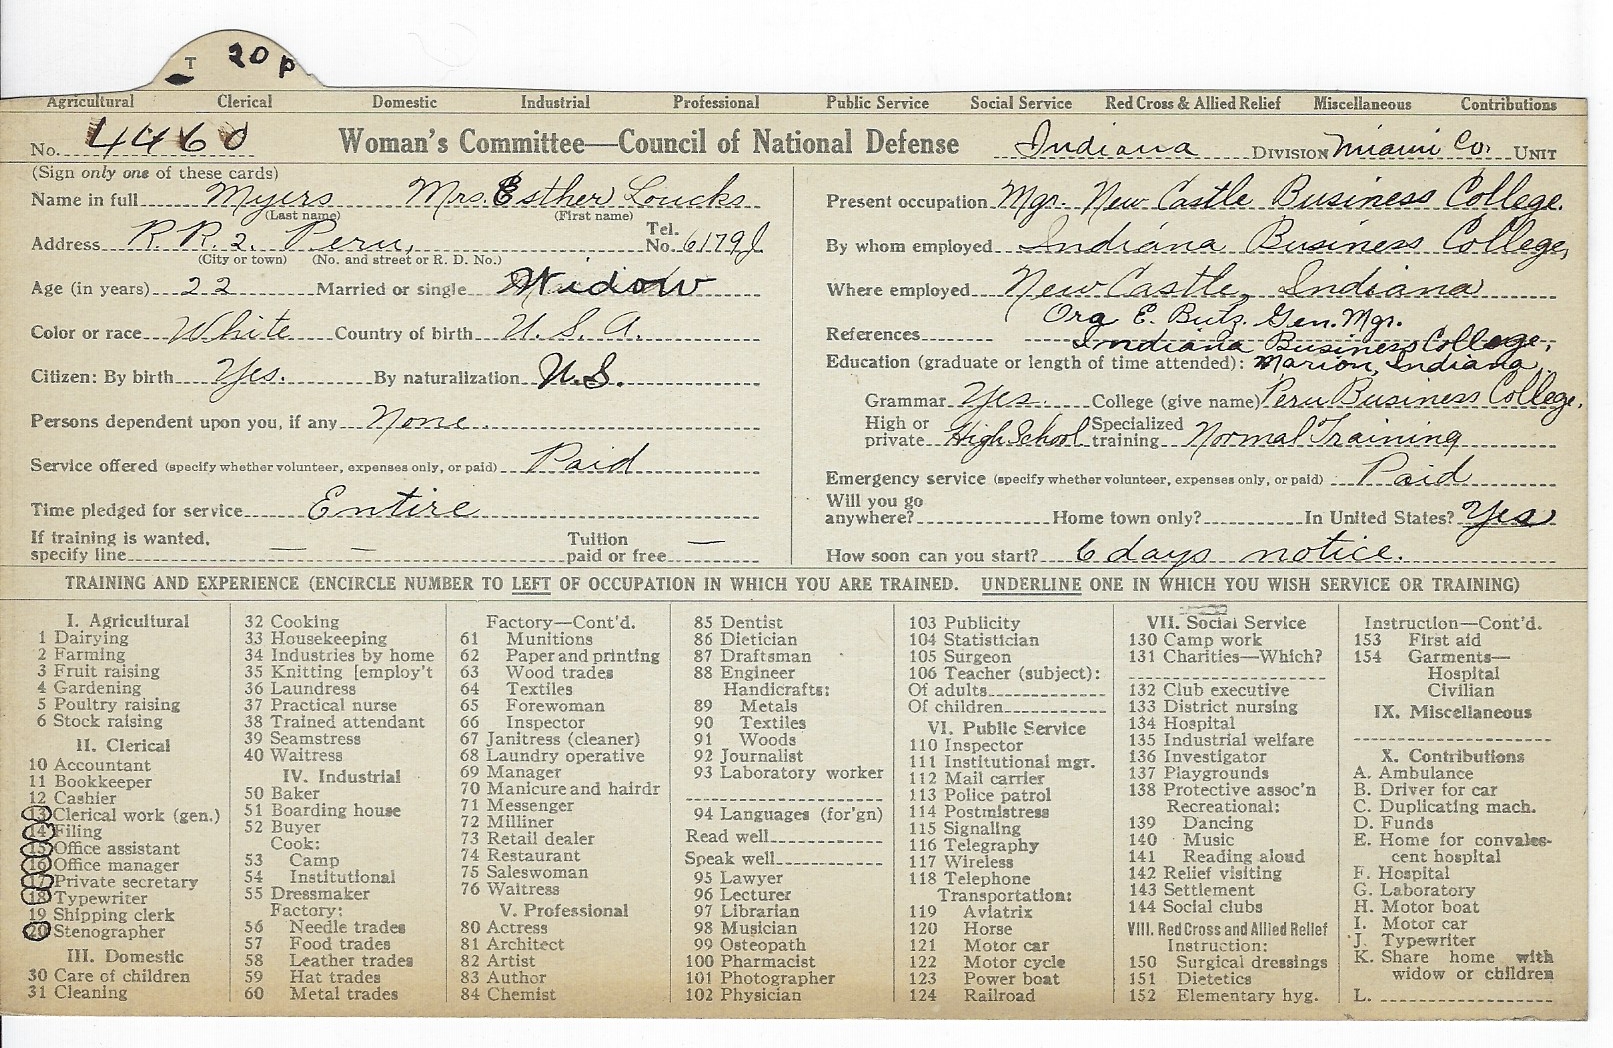 T 20 P
Agricultural Clerical Domestic Industrial Professional Public Service Social Service Red Cross & Allied Relief Miscellaneous Contributions
No. 4460 Woman's Committee—Council of National Defense Indiana DIVISION Miami Co. UNIT
(Sign only one of these cards)
Name in full Myers Mrs. Esther Loucks
(Last name) (First name)
Address R. R. 2. Peru, Tel. No. 6179J
(City or town) (No. and street or R. D. No.)
Age (in years) 22 Married or single Widow
Color or race White Country of birth U. S. A.
Citizen: By birth Yes. By naturalization U.S.
Persons dependent upon you, if any None.
Service offered (specify whether volunteer, expenses only, or paid) Paid
Time pledged for service Entire
If training is wanted, specify line — — Tuition paid or free —
Present occupation Mgr. New Castle Business College.
By whom employed Indiana Business College,
Where employed New Castle, Indiana
Ora E. Butz. Gen. Mgr.
References Indiana Business College,
Education (graduate or length of time attended): Marion, Indiana.
Grammar Yes. College (give name) Peru Business College.
High or private High School Specialized training Normal Training
Emergency service (specify whether volunteer, expenses only, or paid) Paid
Will you go anywhere? Home town only? In United States? Yes
How soon can you start? 6 days notice.
TRAINING AND EXPERIENCE (ENCIRCLE NUMBER TO LEFT OF OCCUPATION IN WHICH YOU ARE TRAINED. UNDERLINE ONE IN WHICH YOU WISH SERVICE OR TRAINING)
I. Agricultural
1 Dairying
2 Farming
3 Fruit raising
4 Gardening
5 Poultry raising
6 Stock raising
II. Clerical
10 Accountant
11 Bookkeeper
12 Cashier
13 Clerical work (gen.)
14 Filing
15 Office assistant
16 Office manager
17 Private secretary
18 Typewriter
19 Shipping clerk
20 Stenographer
III. Domestic
30 Care of children
31 Cleaning
32 Cooking
33 Housekeeping
34 Industries by home
35 Knitting [employ't
36 Laundress
37 Practical nurse
38 Trained attendant
39 Seamstress
40 Waitress
IV. Industrial
50 Baker
51 Boarding house
52 Buyer
Cook:
53 Camp
54 Institutional
55 Dressmaker
Factory:
56 Needle trades
57 Food trades
58 Leather trades
59 Hat trades
60 Metal trades
Factory—Cont'd.
61 Munitions
62 Paper and printing
63 Wood trades
64 Textiles
65 Forewoman
66 Inspector
67 Janitress (cleaner)
68 Laundry operative
69 Manager
70 Manicure and hairdr
71 Messenger
72 Milliner
73 Retail dealer
74 Restaurant
75 Saleswoman
76 Waitress
V. Professional
80 Actress
81 Architect
82 Artist
83 Author
84 Chemist
85 Dentist
86 Dietician
87 Draftsman
88 Engineer
Handicrafts:
89 Metals
90 Textiles
91 Woods
92 Journalist
93 Laboratory worker
94 Languages (for'gn)
Read well
Speak well
95 Lawyer
96 Lecturer
97 Librarian
98 Musician
99 Osteopath
100 Pharmacist
101 Photographer
102 Physician
103 Publicity
104 Statistician
105 Surgeon
106 Teacher (subject):
Of adults
Of children
VI. Public Service
110 Inspector
111 Institutional mgr.
112 Mail carrier
113 Police patrol
114 Postmistress
115 Signaling
116 Telegraphy
117 Wireless
118 Telephone
Transportation:
119 Aviatrix
120 Horse
121 Motor car
122 Motor cycle
123 Power boat
124 Railroad
VII. Social Service
130 Camp work
131 Charities—Which?
132 Club executive
133 District nursing
134 Hospital
135 Industrial welfare
136 Investigator
137 Playgrounds
138 Protective assoc'n
Recreational:
139 Dancing
140 Music
141 Reading aloud
142 Relief visiting
143 Settlement
144 Social clubs
VIII. Red Cross and Allied Relief
Instruction:
150 Surgical dressings
151 Dietetics
152 Elementary hyg.
Instruction—Cont'd.
153 First aid
154 Garments—
Hospital
Civilian
IX. Miscellaneous
X. Contributions
A. Ambulance
B. Driver for car
C. Duplicating mach.
D. Funds
E. Home for convales-
cent hospital
F. Hospital
G. Laboratory
H. Motor boat
I. Motor car
J. Typewriter
K. Share home with
widow or children
L.